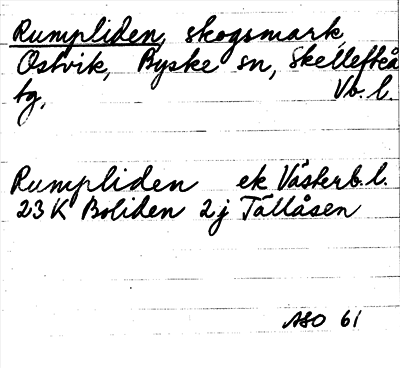 Rumpliden, skogsmark,
Ostvik, Byske sn, Skellefteå
tg, Vb. l.
Rumpliden ek Västerb. l.
23 K Boliden 2j Tällåsen
ASO 61